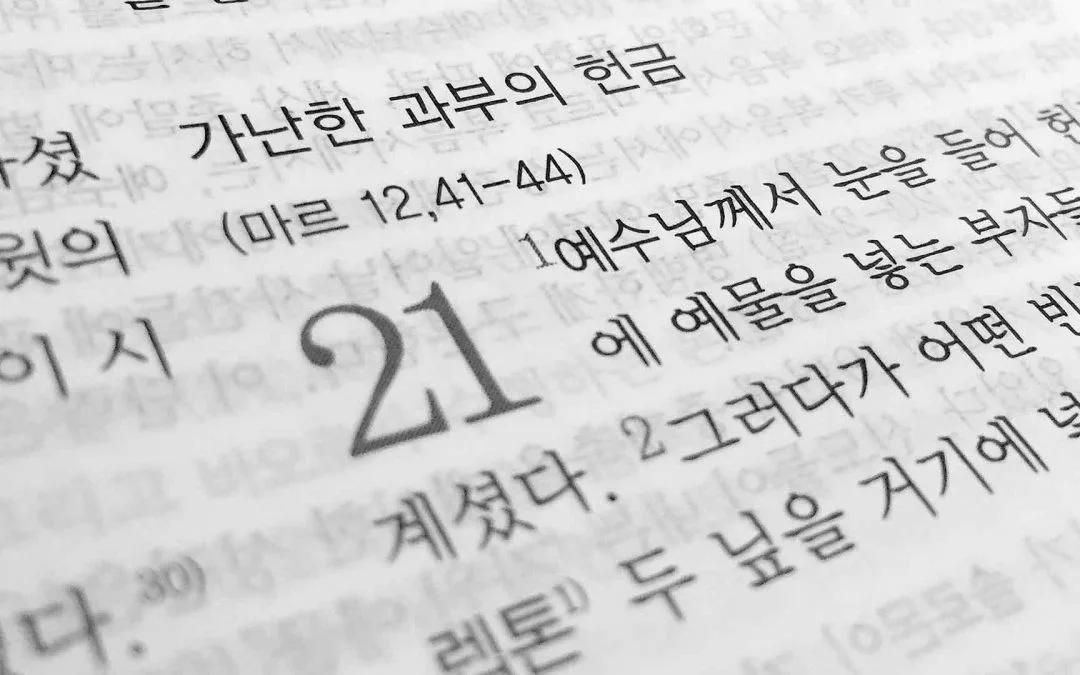 가난한 과부의 헌금
(마르 12,41-44)
21
1예수님께서 눈을 들어
에 예물을 넣는 부자들
계셨다. 2그러다가 어떤 빈
렙톤1) 두 닢을 거기에
윗의
이 시
다. 30)